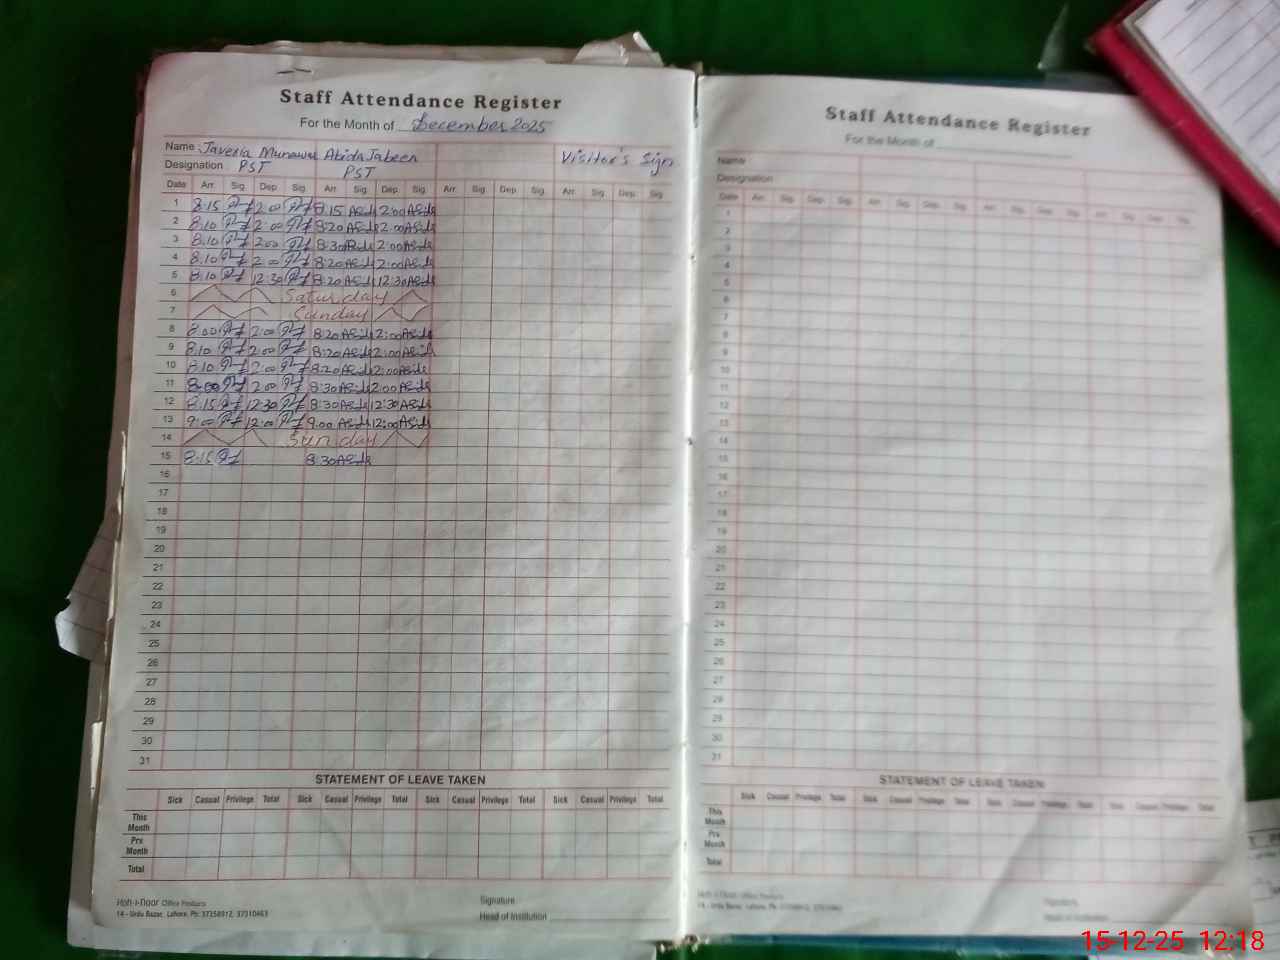 Staff Attendance Register
For the Month of December 2025
Name Javeria Munawar Abida Jabeen Visitor's Sign
Designation PST PST
Date Arr. Sig. Dep. Sig. Arr. Sig. Dep. Sig. Arr. Sig. Dep. Sig. Arr. Sig. Dep. Sig.
1 8:15 2:00 8:15 2:00
2 8:10 2:00 8:20 2:00
3 8:10 2:00 8:30 2:00
4 8:10 2:00 8:20 2:00
5 8:10 12:30 8:20 12:30
6 Saturday
7 Sunday
8 8:00 2:00 8:20 2:00
9 8:10 2:00 8:20 2:00
10 8:10 2:00 8:20 2:00
11 8:00 2:00 8:30 2:00
12 8:15 12:30 8:30 12:30
13 9:00 12:00 9:00 12:00
14 Sunday
15 8:15 8:30
16
17
18
19
20
21
22
23
24
25
26
27
28
29
30
31
STATEMENT OF LEAVE TAKEN
Sick Casual Privilege Total Sick Casual Privilege Total Sick Casual Privilege Total Sick Casual Privilege Total
This
Month
Pre
Month
Total
Signature
Head of Institution
Hafi-i-Noor Office Products
14 - Urdu Bazar, Lahore. Ph: 37358912, 37310463
Staff Attendance Register
For the Month of
Name
Designation
Date Arr. Sig. Dep. Sig. Arr. Sig. Dep. Sig. Arr. Sig. Dep. Sig. Arr. Sig. Dep. Sig.
1
2
3
4
5
6
7
8
9
10
11
12
13
14
15
16
17
18
19
20
21
22
23
24
25
26
27
28
29
30
31
STATEMENT OF LEAVE TAKEN
Sick Casual Privilege Total Sick Casual Privilege Total Sick Casual Privilege Total Sick Casual Privilege Total
This
Month
Pre
Month
Total
Signature
Head of Institution
15-12-25 12:18